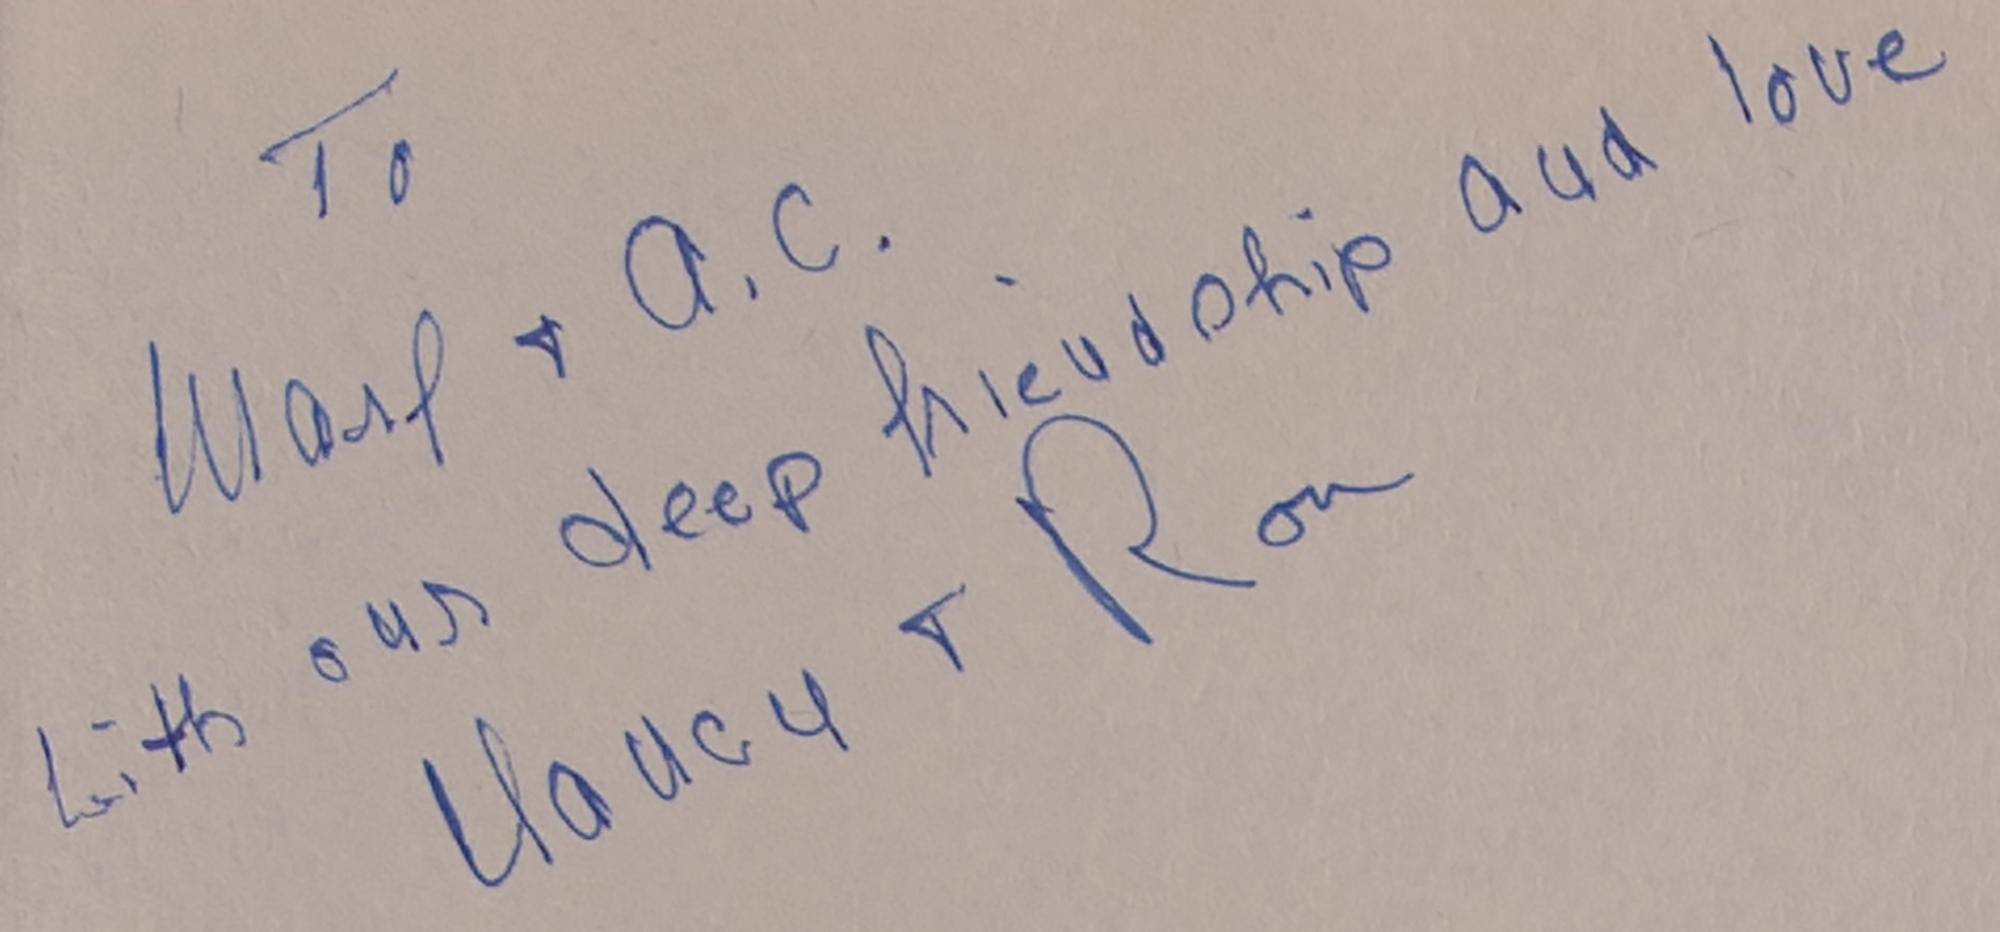 To
Mary + A.C.
With our deep friendship and love
Nancy + Ron